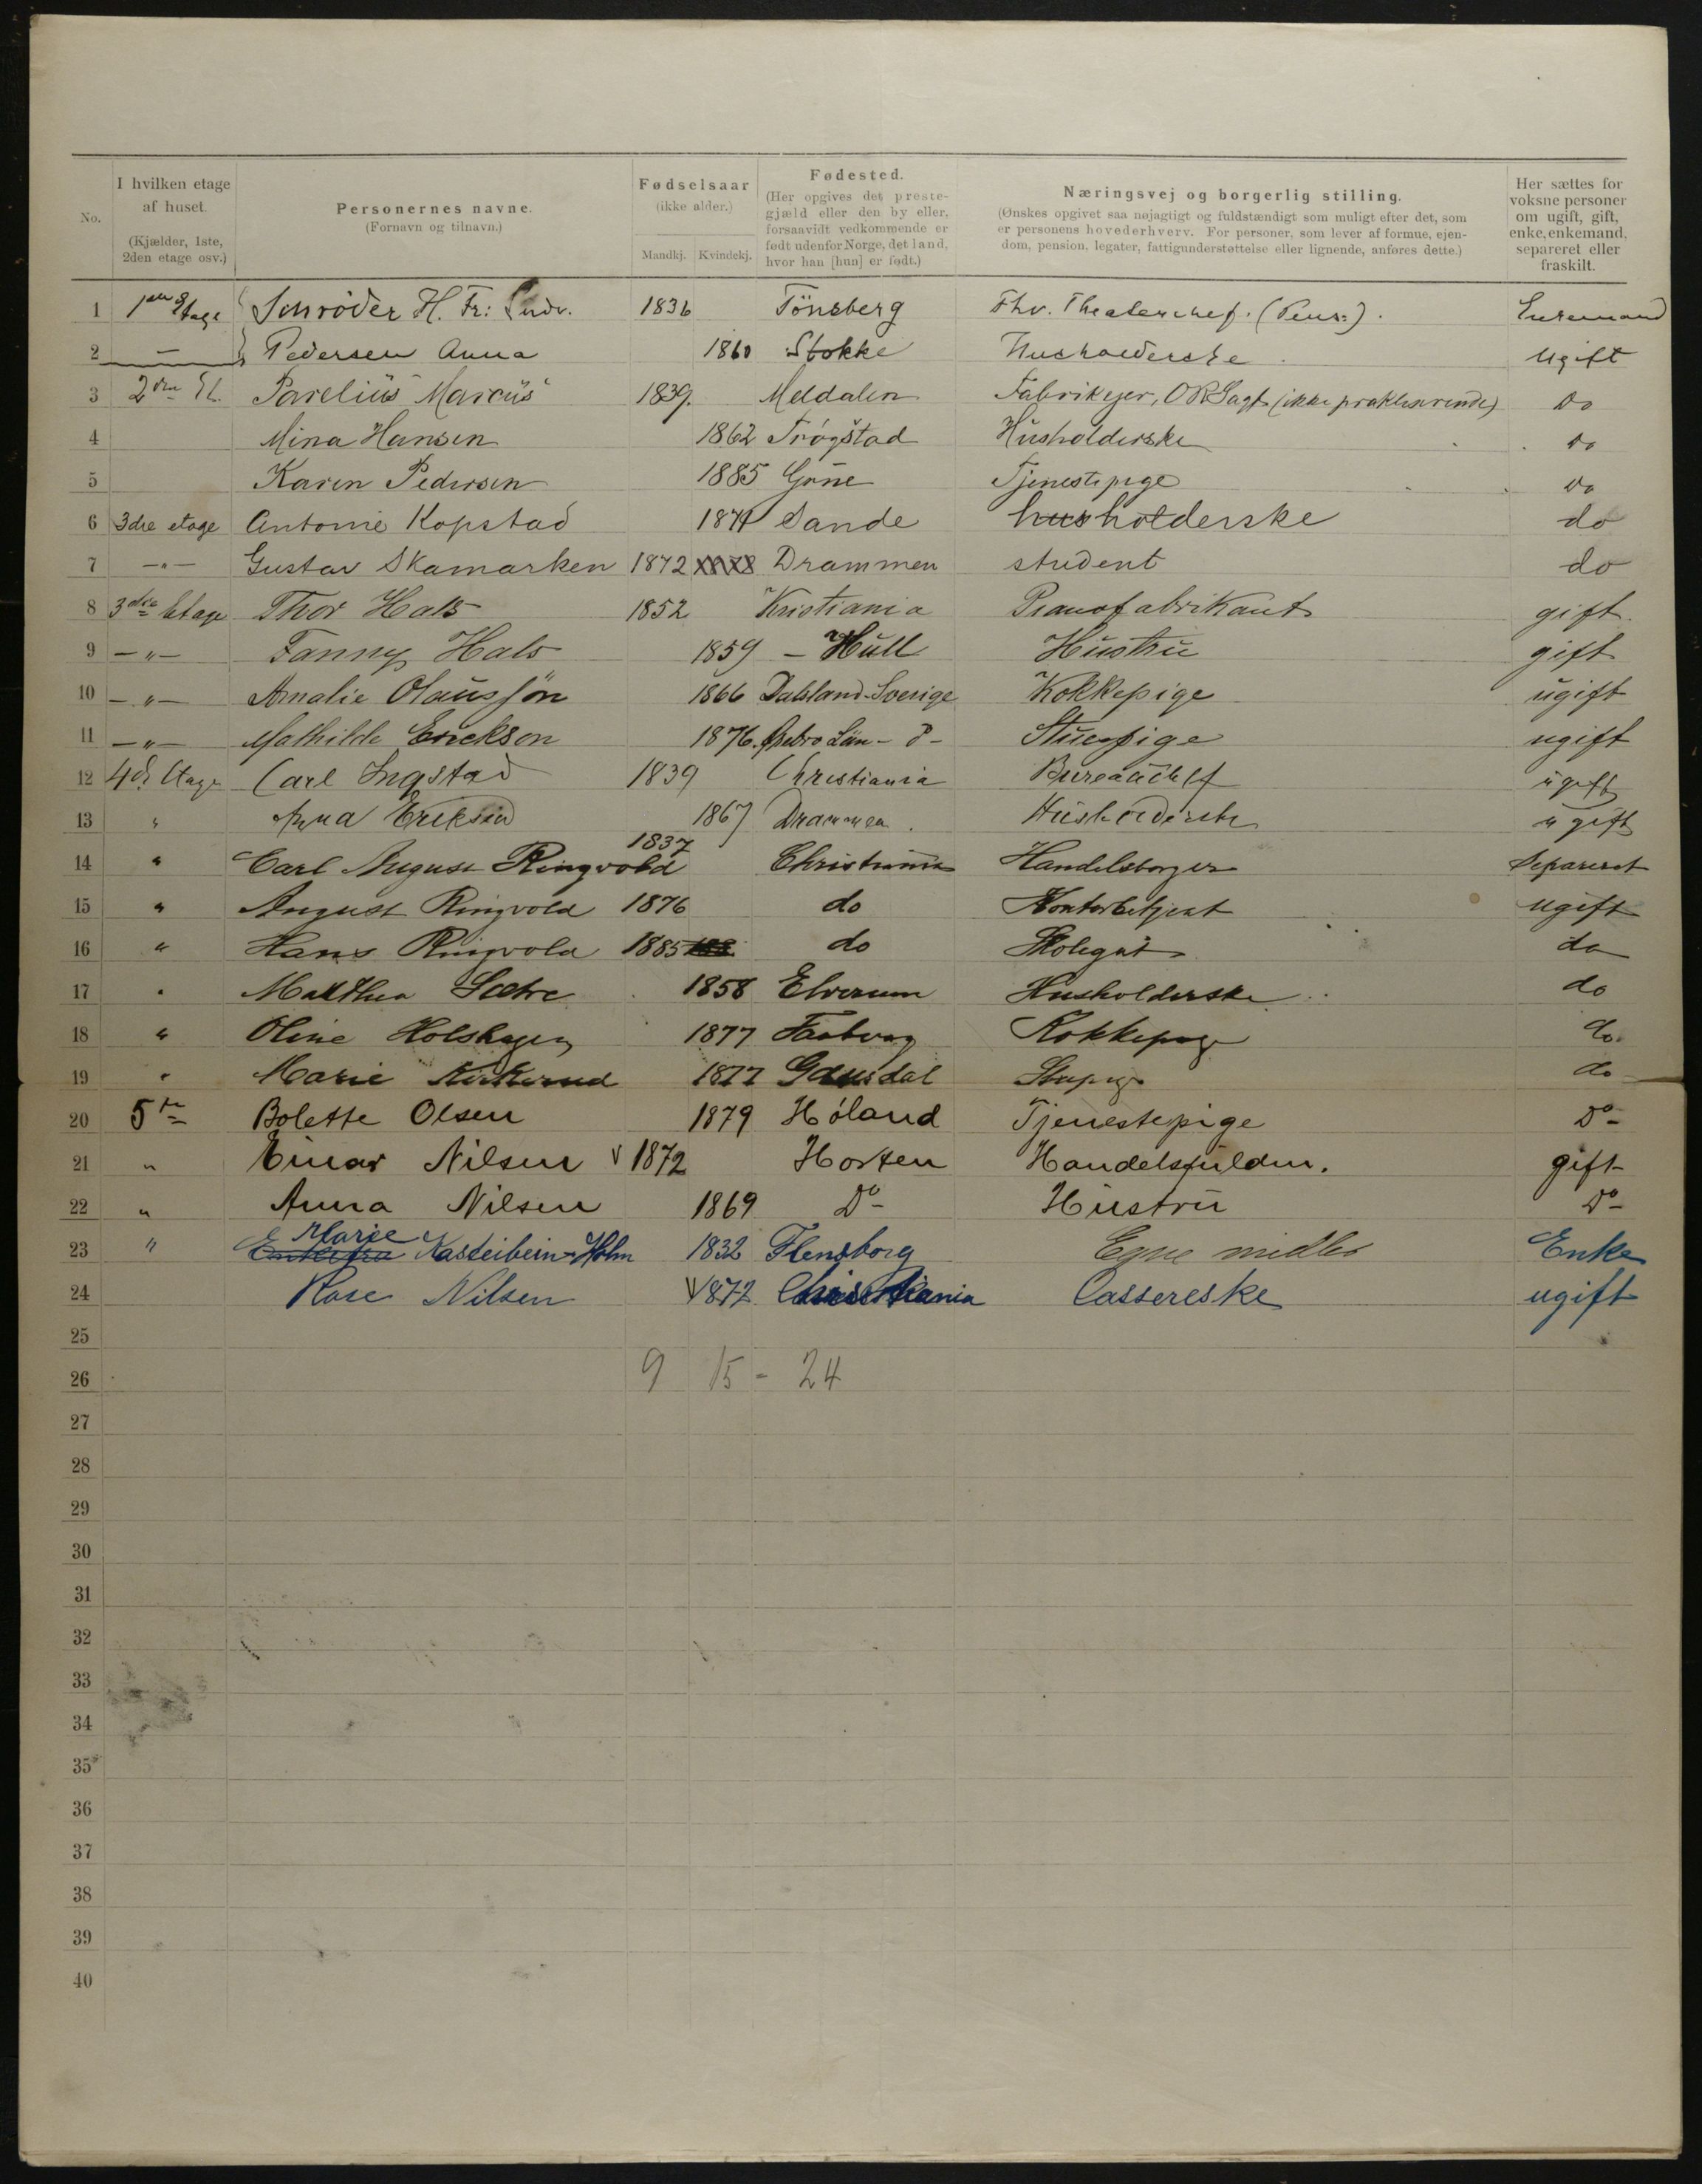 No. I hvilken etage af huset. (Kjælder, 1ste, 2den etage osv.) Personernes navne. (Fornavn og tilnavn.) Fødselsaar (ikke alder.) Mandkj. Kvindekj. Fødested. (Her opgives det prestegjæld eller den by eller, forsaavidt vedkommende er født udenfor Norge, det land, hvor han [hun] er født.) Næringsvej og borgerlig stilling. (Ønskes opgivet saa nøjagtigt og fuldstændigt som muligt efter det, som er personens hovederhverv. For personer, som lever af formue, ejendom, pension, legater, fattigunderstøttelse eller lignende, anføres dette.) Her sættes for voksne personer om ugift, gift, enke, enkemand, separeret eller fraskilt.
1 1ste Etage Schrøder H. Fr: Ludv. 1836 Tönsberg Fhv. Theaterchef. (Pens:). Enkemand
2 — Pedersen Anna 1860 Stokke Husholderske Ugift
3 2den Et. Parelius Marcus 1839. Meldalen Fabrikejer, ORSagf (ikke praktiserende) Do
4 Mina Hansen 1862 Trøgstad Husholderske Do
5 Karen Pedersen 1885 Tjenestepige Do
6 3die etage Antonie Kopstad Sande husholderske do
7 -"- Gustav Skamarken 1872 Drammen student do
8 3die Etage Thor Hals 1852 Kristiania Pianofabrikant gift.
9 -"- Fanny Hals 1859 - Hull Hustru gift
10 -"- Amalie Olaussön 1866 Dalsland-Sverige Kokkepige ugift
11 -"- Mathilde Erickson 1876. Ørebro Län - d- Stuepige ugift
12 4de Etage Carl Ingstad 1839 Christiania Bureauchef ugift
13 " Anna Eriksen 1867 Drammen. Husholderske ugift
14 " Carl August Ringvold 1837 Christiania Handelsborger Separeret
15 " August Ringvold 1876 do Kontorbetjent ugift
16 " Hans Ringvold 1885 do Skolegut do
17 " Matthea Sætre 1858 Elverum Husholderske do
18 " Oline Holshagen 1877 Faaberg Kokkepige do
19 " Marie Kirkerud 1877 Gausdal Stupige do
20 5te Bolette Olsen 1879 Høland Tjenestepige Do
21 " Einar Nilsen 1872 Horten Handelsfuldm. gift
22 " Anna Nilsen 1869 Do Hustru Do
23 " E Marie Kasteibein-Holm 1832 Flensborg Egne midler Enke
24 Rose Nilsen 1872 Christiania Cassereske ugift
25
26 9 15 - 24
27
28
29
30
31
32
33
34
35
36
37
38
39
40